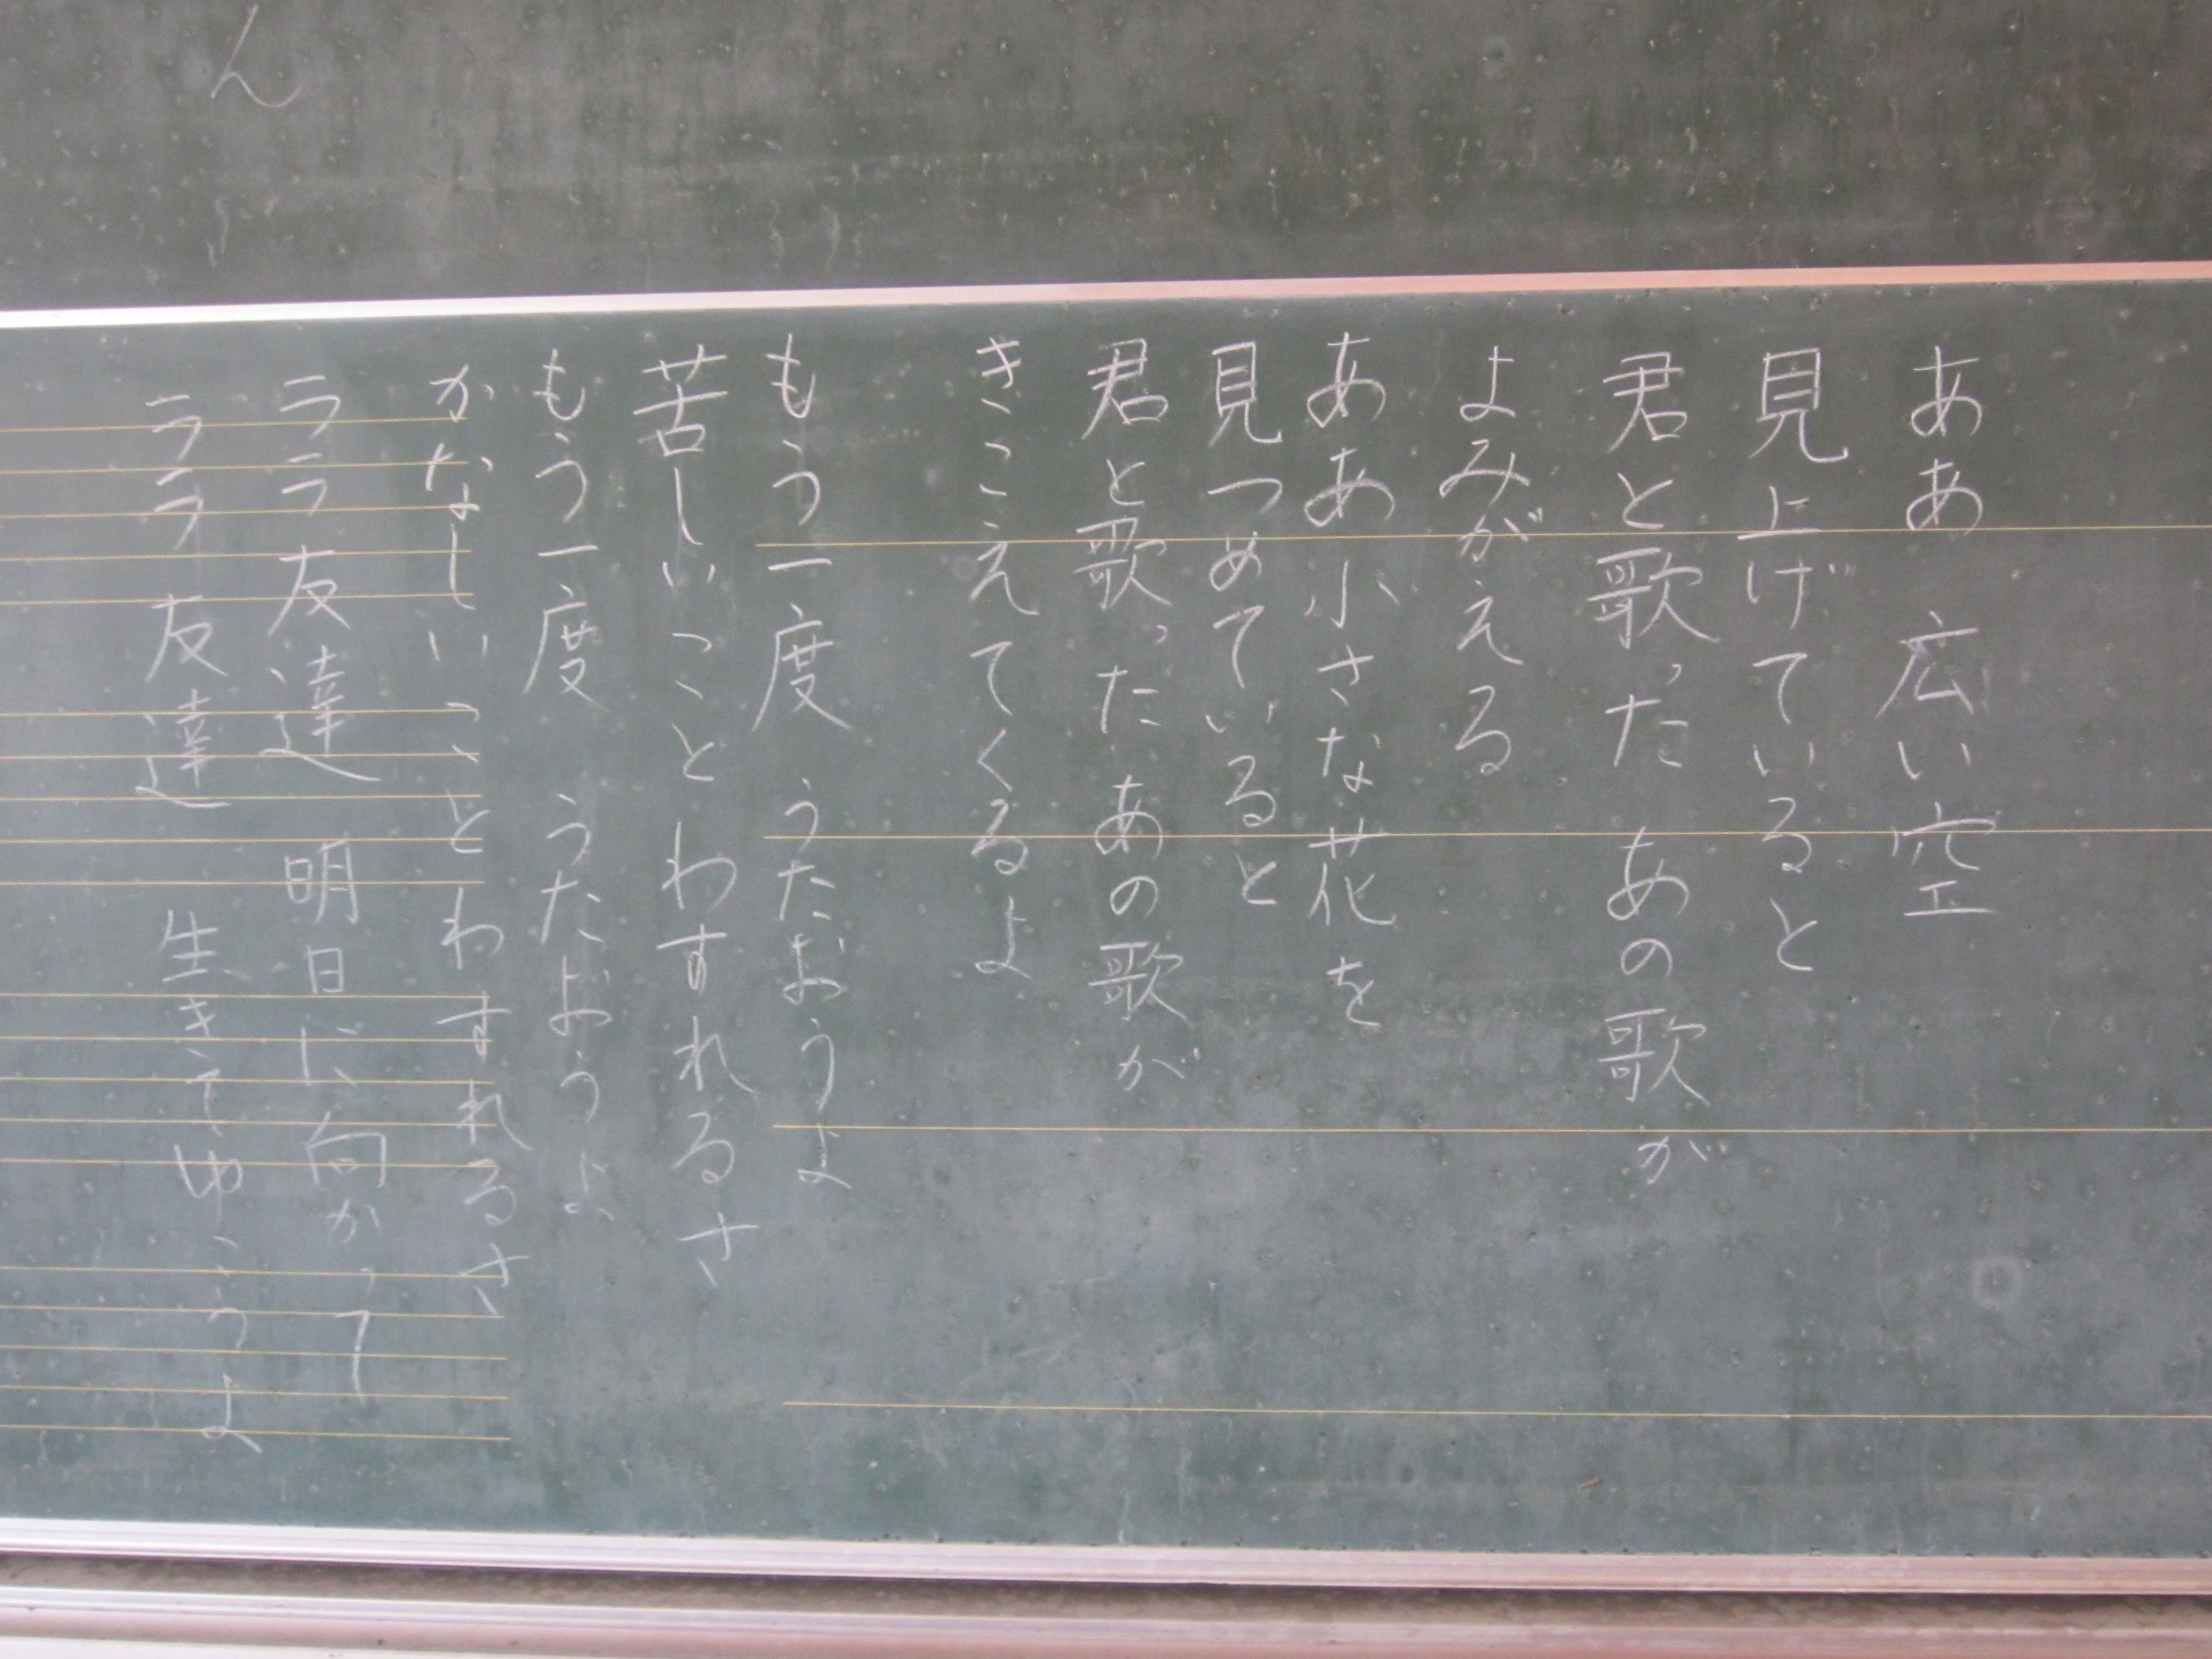 ああ　広い空
見上げていると
君と歌った　あの歌が
よみがえる
ああ小さな花を
見つめていると
君と歌った　あの歌が
きこえてくるよ
もう一度　うたおうよ
苦しいこと　わすれるさ
もう一度　うたおうよ
かなしいこと　わすれるさ
ララ　友達　明日に向かって
ララ　友達　生きてゆこうよ
ん